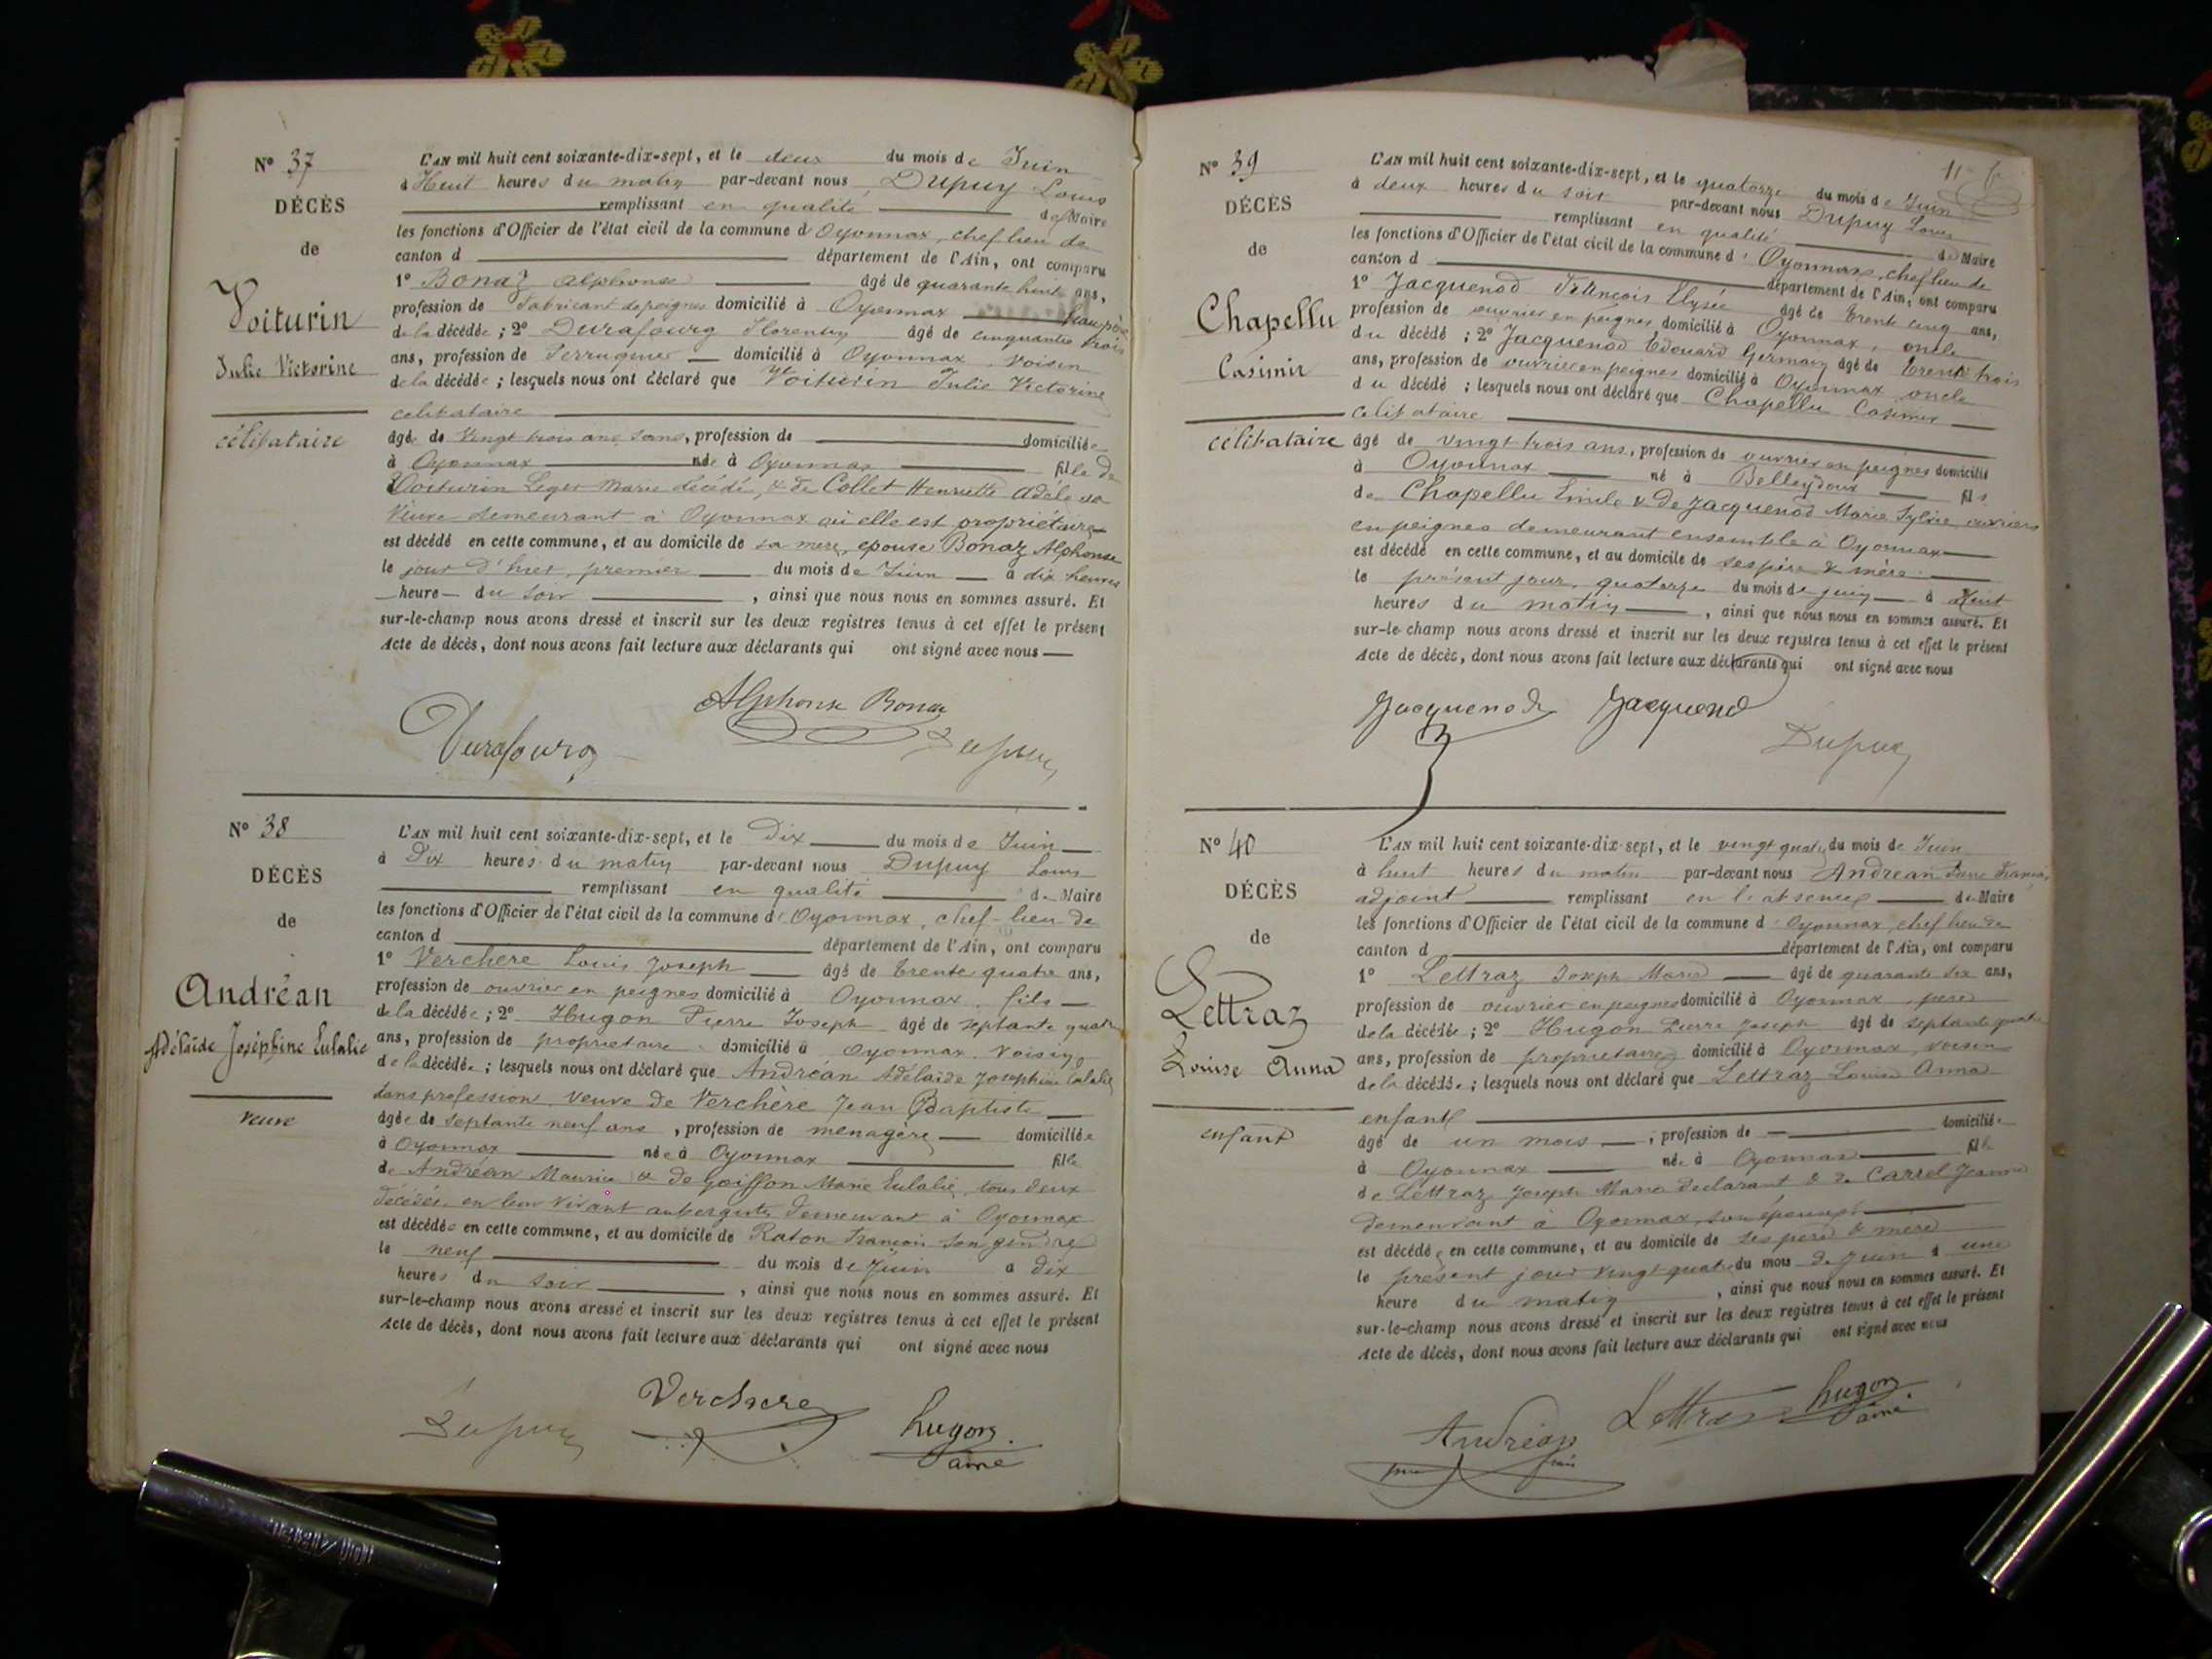 N° 37
DÉCÈS
de
Voiturin
Julie Victorine
célibataire
L'AN mil huit cent soixante-dix-sept, et le deux du mois de Juin
à Huit heures du matin par-devant nous Dupuy Louis
remplissant en qualité de Maire
les fonctions d'Officier de l'état civil de la commune d'Oyonnax, chef lieu de
canton d département de l'Ain, ont comparu
1° Bonaz Alphonse âgé de quarante huit ans,
profession de fabricant de peignes domicilié à Oyonnax beau père
de la décédée ; 2° Durafourg Florentin âgé de cinquante trois
ans, profession de Perruquier domicilié à Oyonnax voisin
de la décédée ; lesquels nous ont déclaré que Voiturin Julie Victorine
celibataire
âgée de vingt trois ans sans, profession de domiciliée
à Oyonnax née à Oyonnax fille de
Voiturin Leger Marie décédé, & de Collet Henriette Adèle sa
veuve demeurant à Oyonnax où elle est propriétaire
est décédé en cette commune, et au domicile de sa mère, epouse Bonaz Alphonse
le jour d'hier premier du mois de Juin à dix heures
heure du soir , ainsi que nous nous en sommes assuré. Et
sur-le-champ nous avons dressé et inscrit sur les deux registres tenus à cet effet le présent
Acte de décès, dont nous avons fait lecture aux déclarants qui ont signé avec nous
Alphonse Bonaz
Durafourg Dupuy
N° 38
DÉCÈS
de
Andréan
Adélaïde Joséphine Eulalie
veuve
L'AN mil huit cent soixante-dix-sept, et le Dix du mois de Juin
à Dix heures du matin par-devant nous Dupuy Louis
remplissant en qualité de Maire
les fonctions d'Officier de l'état civil de la commune d'Oyonnax, chef-lieu de
canton d département de l'Ain, ont comparu
1° Verchere Louis Joseph âgé de trente quatre ans,
profession de ouvrier en peignes domicilié à Oyonnax, fils
de la décédée ; 2° Hugon Pierre Joseph âgé de septante quatre
ans, profession de proprietaire domicilié à Oyonnax. Voisin
de la décédée ; lesquels nous ont déclaré que Andréan Adélaïde Joséphine Eulalie
sans profession, veuve de Verchère Jean Baptiste
âgée de septante neuf ans , profession de menagère domiciliée
à Oyonnax née à Oyonnax fille
de Andréan Maurice & de Goiffon Marie Eulalie, tous deux
décédés, en leur vivant aubergistes demeurant à Oyonnax
est décédée en cette commune, et au domicile de Raton François son gendre
le neuf du mois de Juin à dix
heures du soir , ainsi que nous nous en sommes assuré. Et
sur-le-champ nous avons dressé et inscrit sur les deux registres tenus à cet effet le présent
Acte de décès, dont nous avons fait lecture aux déclarants qui ont signé avec nous
Dupuy Verchere hugon
ainé
N° 39
DÉCÈS
de
Chapellu
Casimir
célibataire
L'AN mil huit cent soixante-dix-sept, et le quatorze du mois de Juin
à deux heures du soir par-devant nous Dupuy Louis
remplissant en qualité de Maire
les fonctions d'Officier de l'état civil de la commune d'Oyonnax, chef lieu de
canton d département de l'Ain, ont comparu
1° Jacquenod François Elysée âgé de trente cinq ans,
profession de ouvrier en peignes domicilié à Oyonnax, oncle
du décédé ; 2° Jacquenod Edouard Germain âgé de trente trois
ans, profession de ouvrier en peignes domicilié à Oyonnax oncle
du décédé ; lesquels nous ont déclaré que Chapellu Casimir
celibataire
âgé de vingt trois ans, profession de ouvrier en peignes domicilié
à Oyonnax né à Belleydoux fils
de Chapellu Emile & de Jacquenod Marie Sylvie, ouvriers
en peignes demeurant ensemble à Oyonnax
est décédé en cette commune, et au domicile de ses père & mère
le présent jour quatorze du mois de juin à Huit
heures du matin , ainsi que nous nous en sommes assuré. Et
sur-le-champ nous avons dressé et inscrit sur les deux registres tenus à cet effet le présent
Acte de décès, dont nous avons fait lecture aux déclarants qui ont signé avec nous
Jacquenod Jacquenod
Dupuy
N° 40
DÉCÈS
de
Lettraz
Louise Anna
enfant
L'AN mil huit cent soixante-dix-sept, et le vingt quatre du mois de Juin
à huit heures du matin par-devant nous Andréan Pierre François
adjoint remplissant en l'absence du Maire
les fonctions d'Officier de l'état civil de la commune d'Oyonnax, chef lieu de
canton d département de l'Ain, ont comparu
1° Lettraz Joseph Marie âgé de quarante six ans,
profession de ouvrier en peignes domicilié à Oyonnax, père
de la décédée ; 2° Hugon Pierre Joseph âgé de septante quatre
ans, profession de propriétaire domicilié à Oyonnax, voisin
de la décédée ; lesquels nous ont déclaré que Lettraz Louise Anna
enfant
âgé de un mois , profession de domiciliée
à Oyonnax née à Oyonnax fille
de Lettraz Joseph Marie déclarant & de Carrel Jeanne
demeurant à Oyonnax, son épouse
est décédée en cette commune, et au domicile de ses père & mère
le présent jour vingt quatre du mois de Juin à une
heure du matin , ainsi que nous nous en sommes assuré. Et
sur-le-champ nous avons dressé et inscrit sur les deux registres tenus à cet effet le présent
Acte de décès, dont nous avons fait lecture aux déclarants qui ont signé avec nous
Andréan Lettraz hugon
ainé